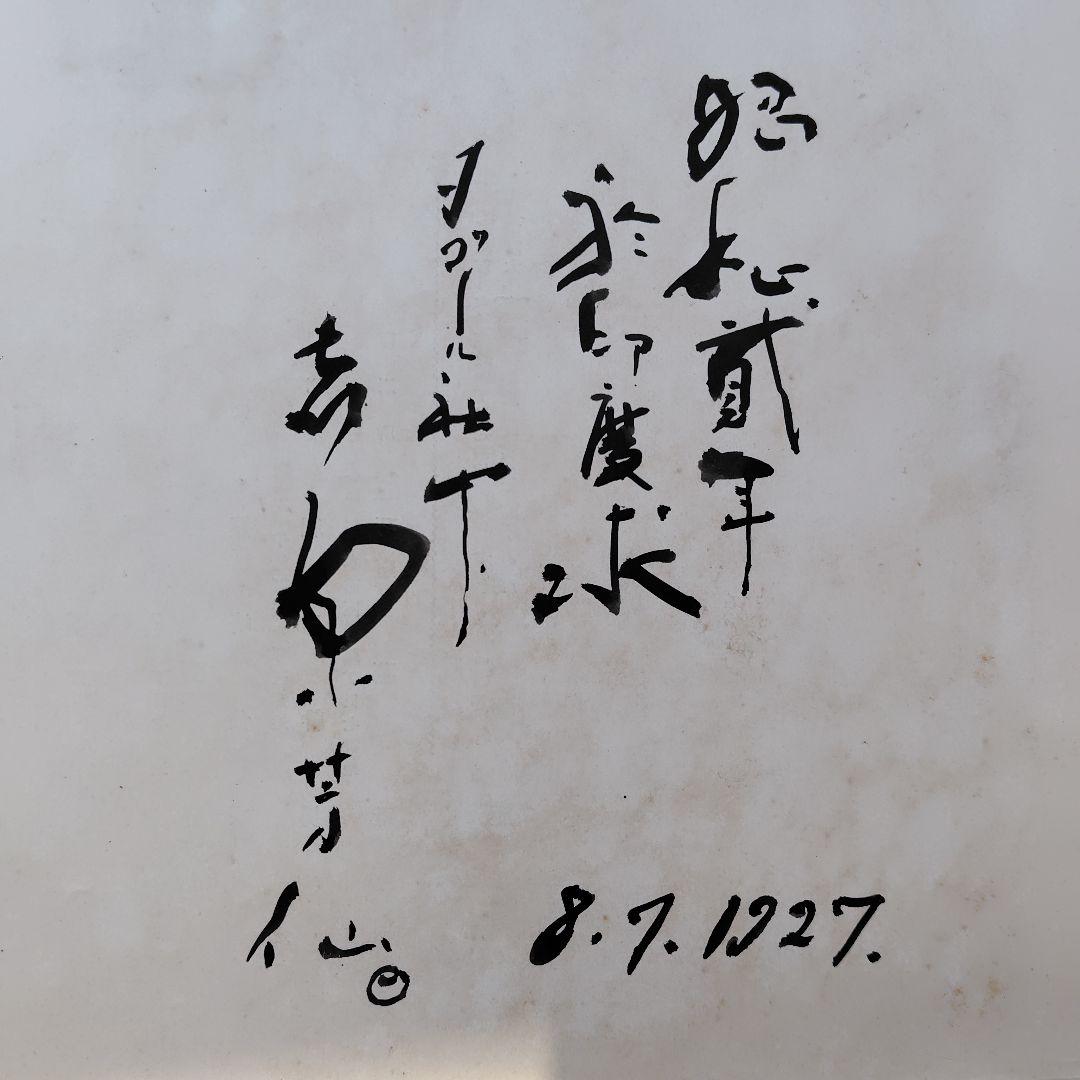 昭和貳年
於印度求之
タゴール社下
仙
8.7.1927.